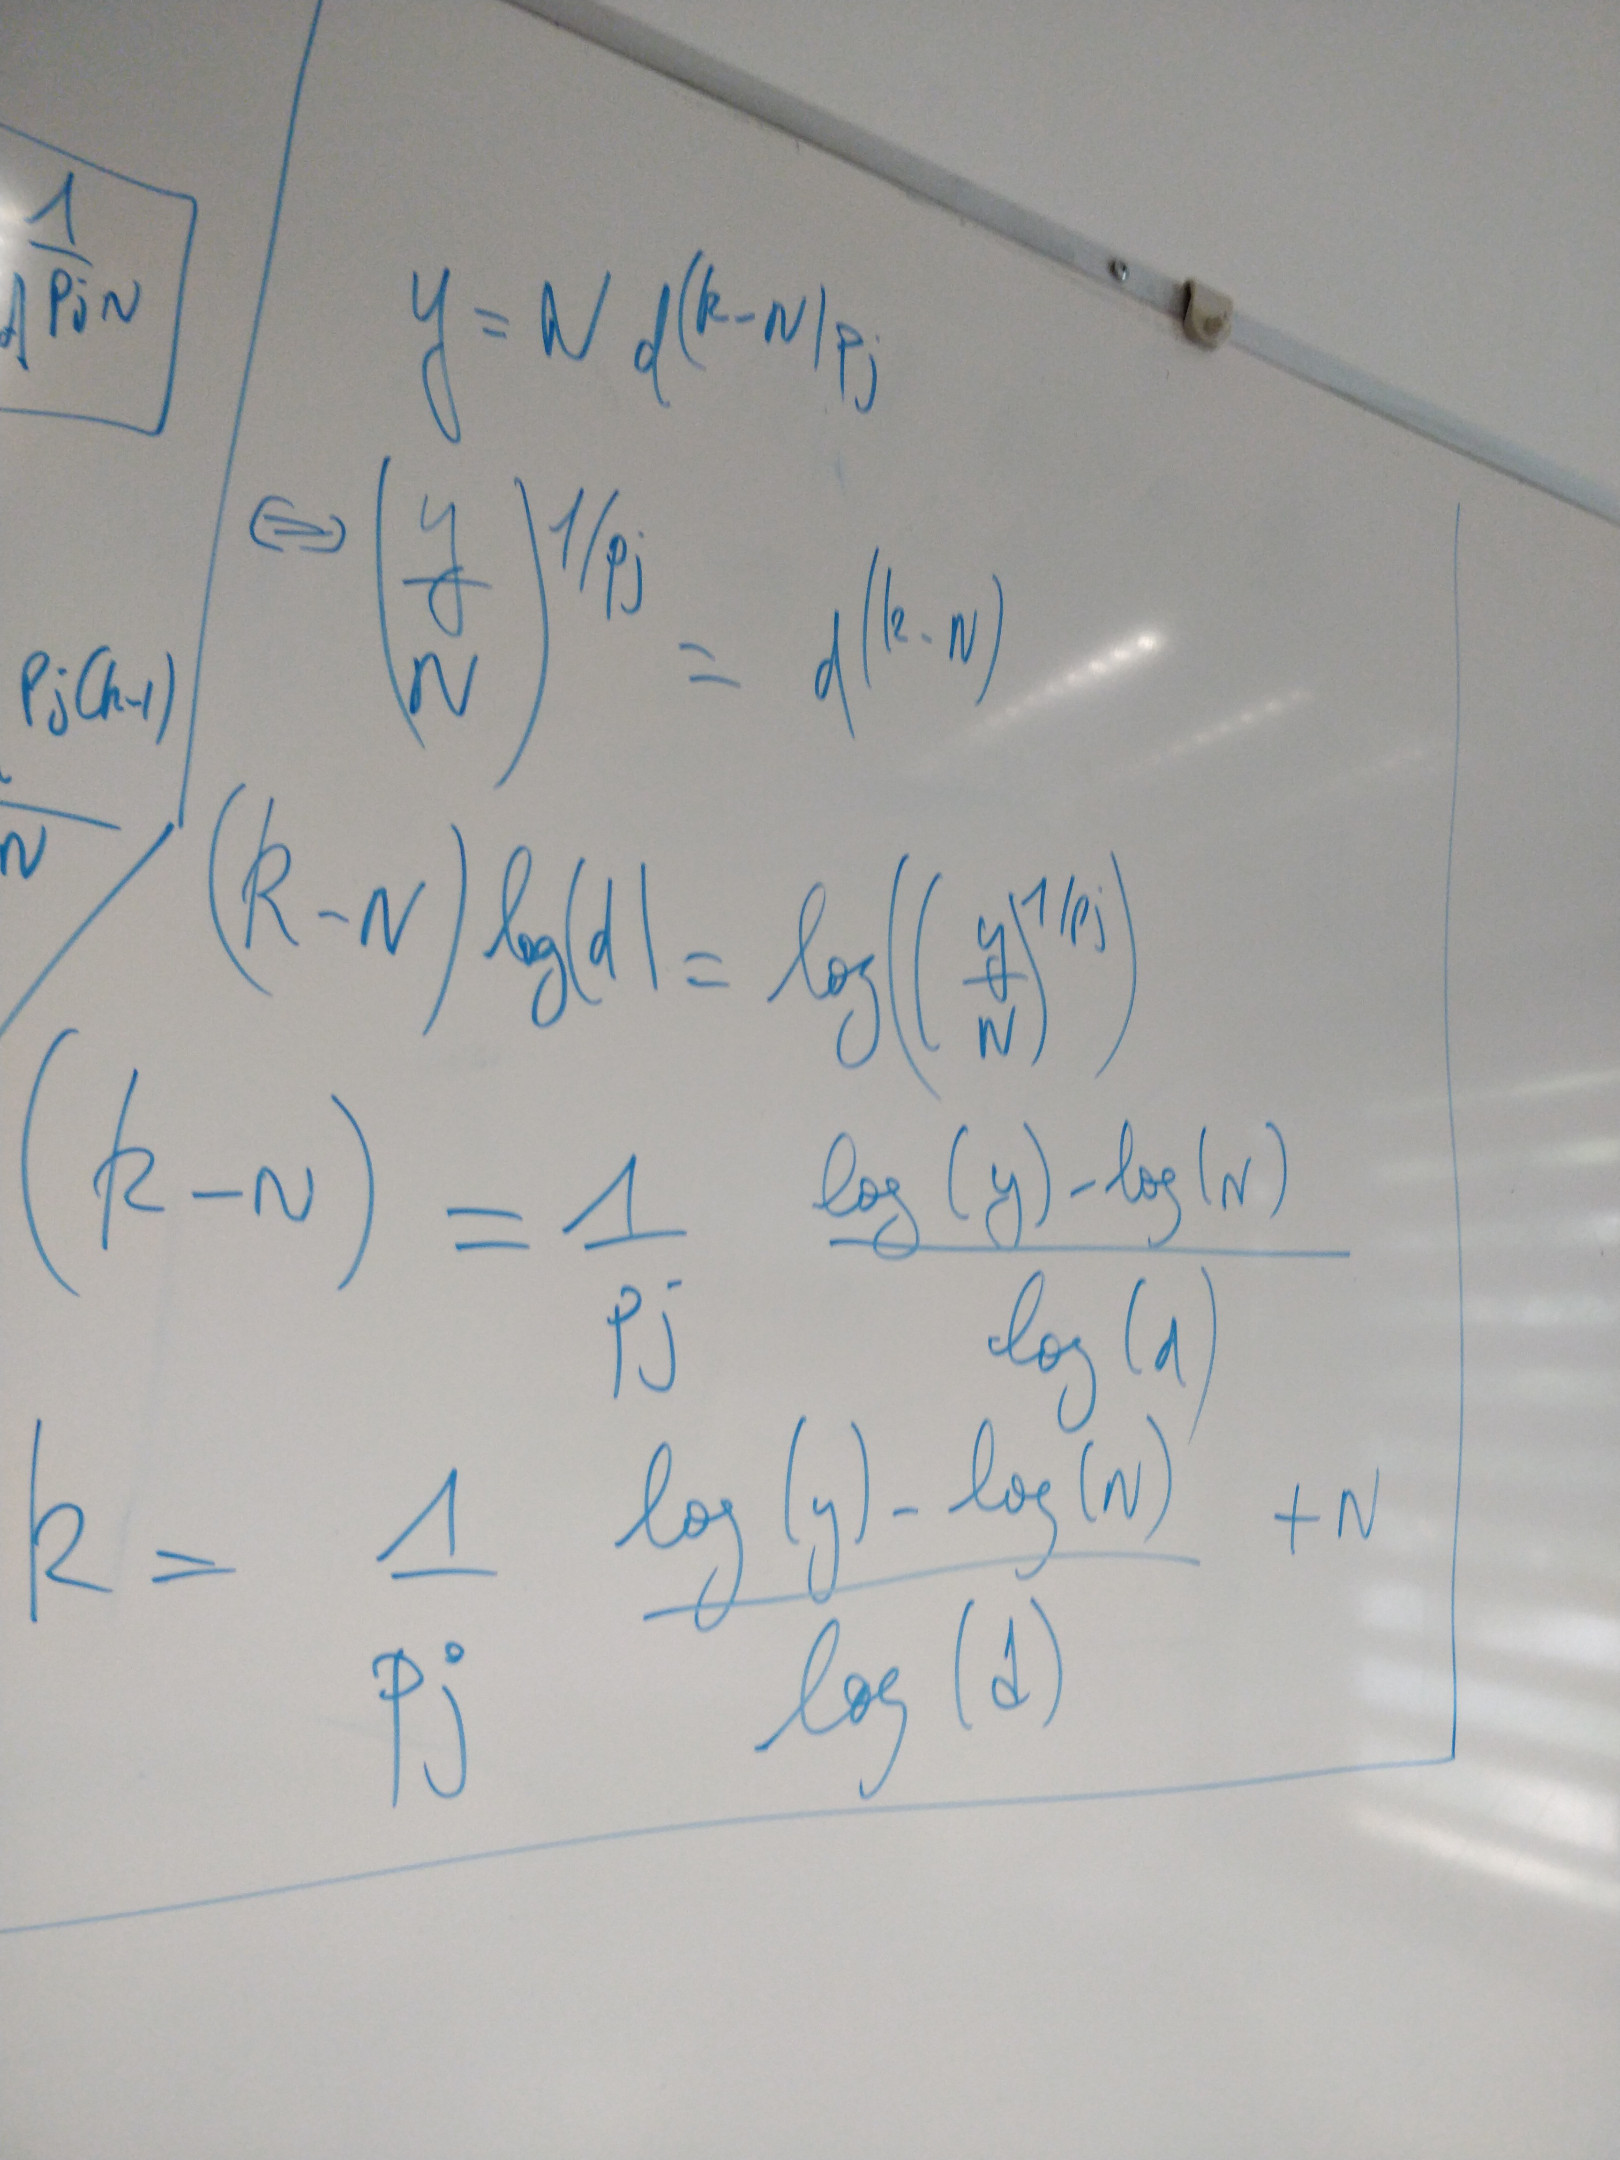 1
PjN
y = N d^(k-N)Pj
⇔ (y/N)^1/Pj = d^(k-N)
Pj(k-1)
N
(k-N) log(d) = log((y/N)^1/Pj)
(k-N) = 1/Pj log(y)-log(N)/log(d)
k = 1/Pj log(y)-log(N)/log(d) +N